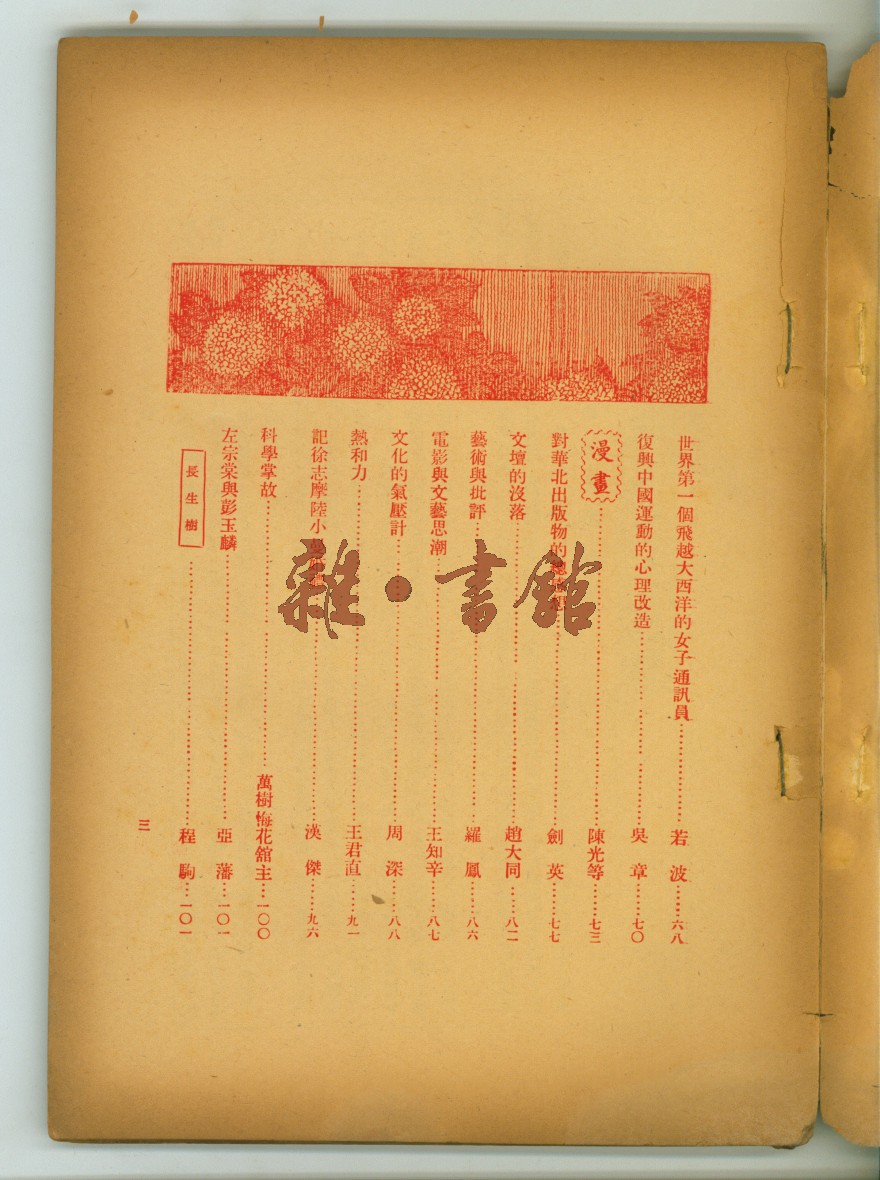 世界第一個飛越大西洋的女子通訊員……………若 波……六八
復興中國運動的心理改造……………吳 章……七〇
漫畫……………陳光等……七三
對華北出版物的……………劍 英……七七
文壇的沒落……………趙大同……八二
藝術與批評……………羅 鳳……八六
電影與文藝思潮……………王知辛……八七
文化的氣壓計……………周 深……八八
熱和力……………王君直……九一
記徐志摩陸小……………漢 傑……九六
科學掌故……………萬樹梅花舘主…一〇〇
左宗棠與彭玉麟……………亞 藩…一〇一
長生樹……………程 駒…一〇一
三
雜·書館